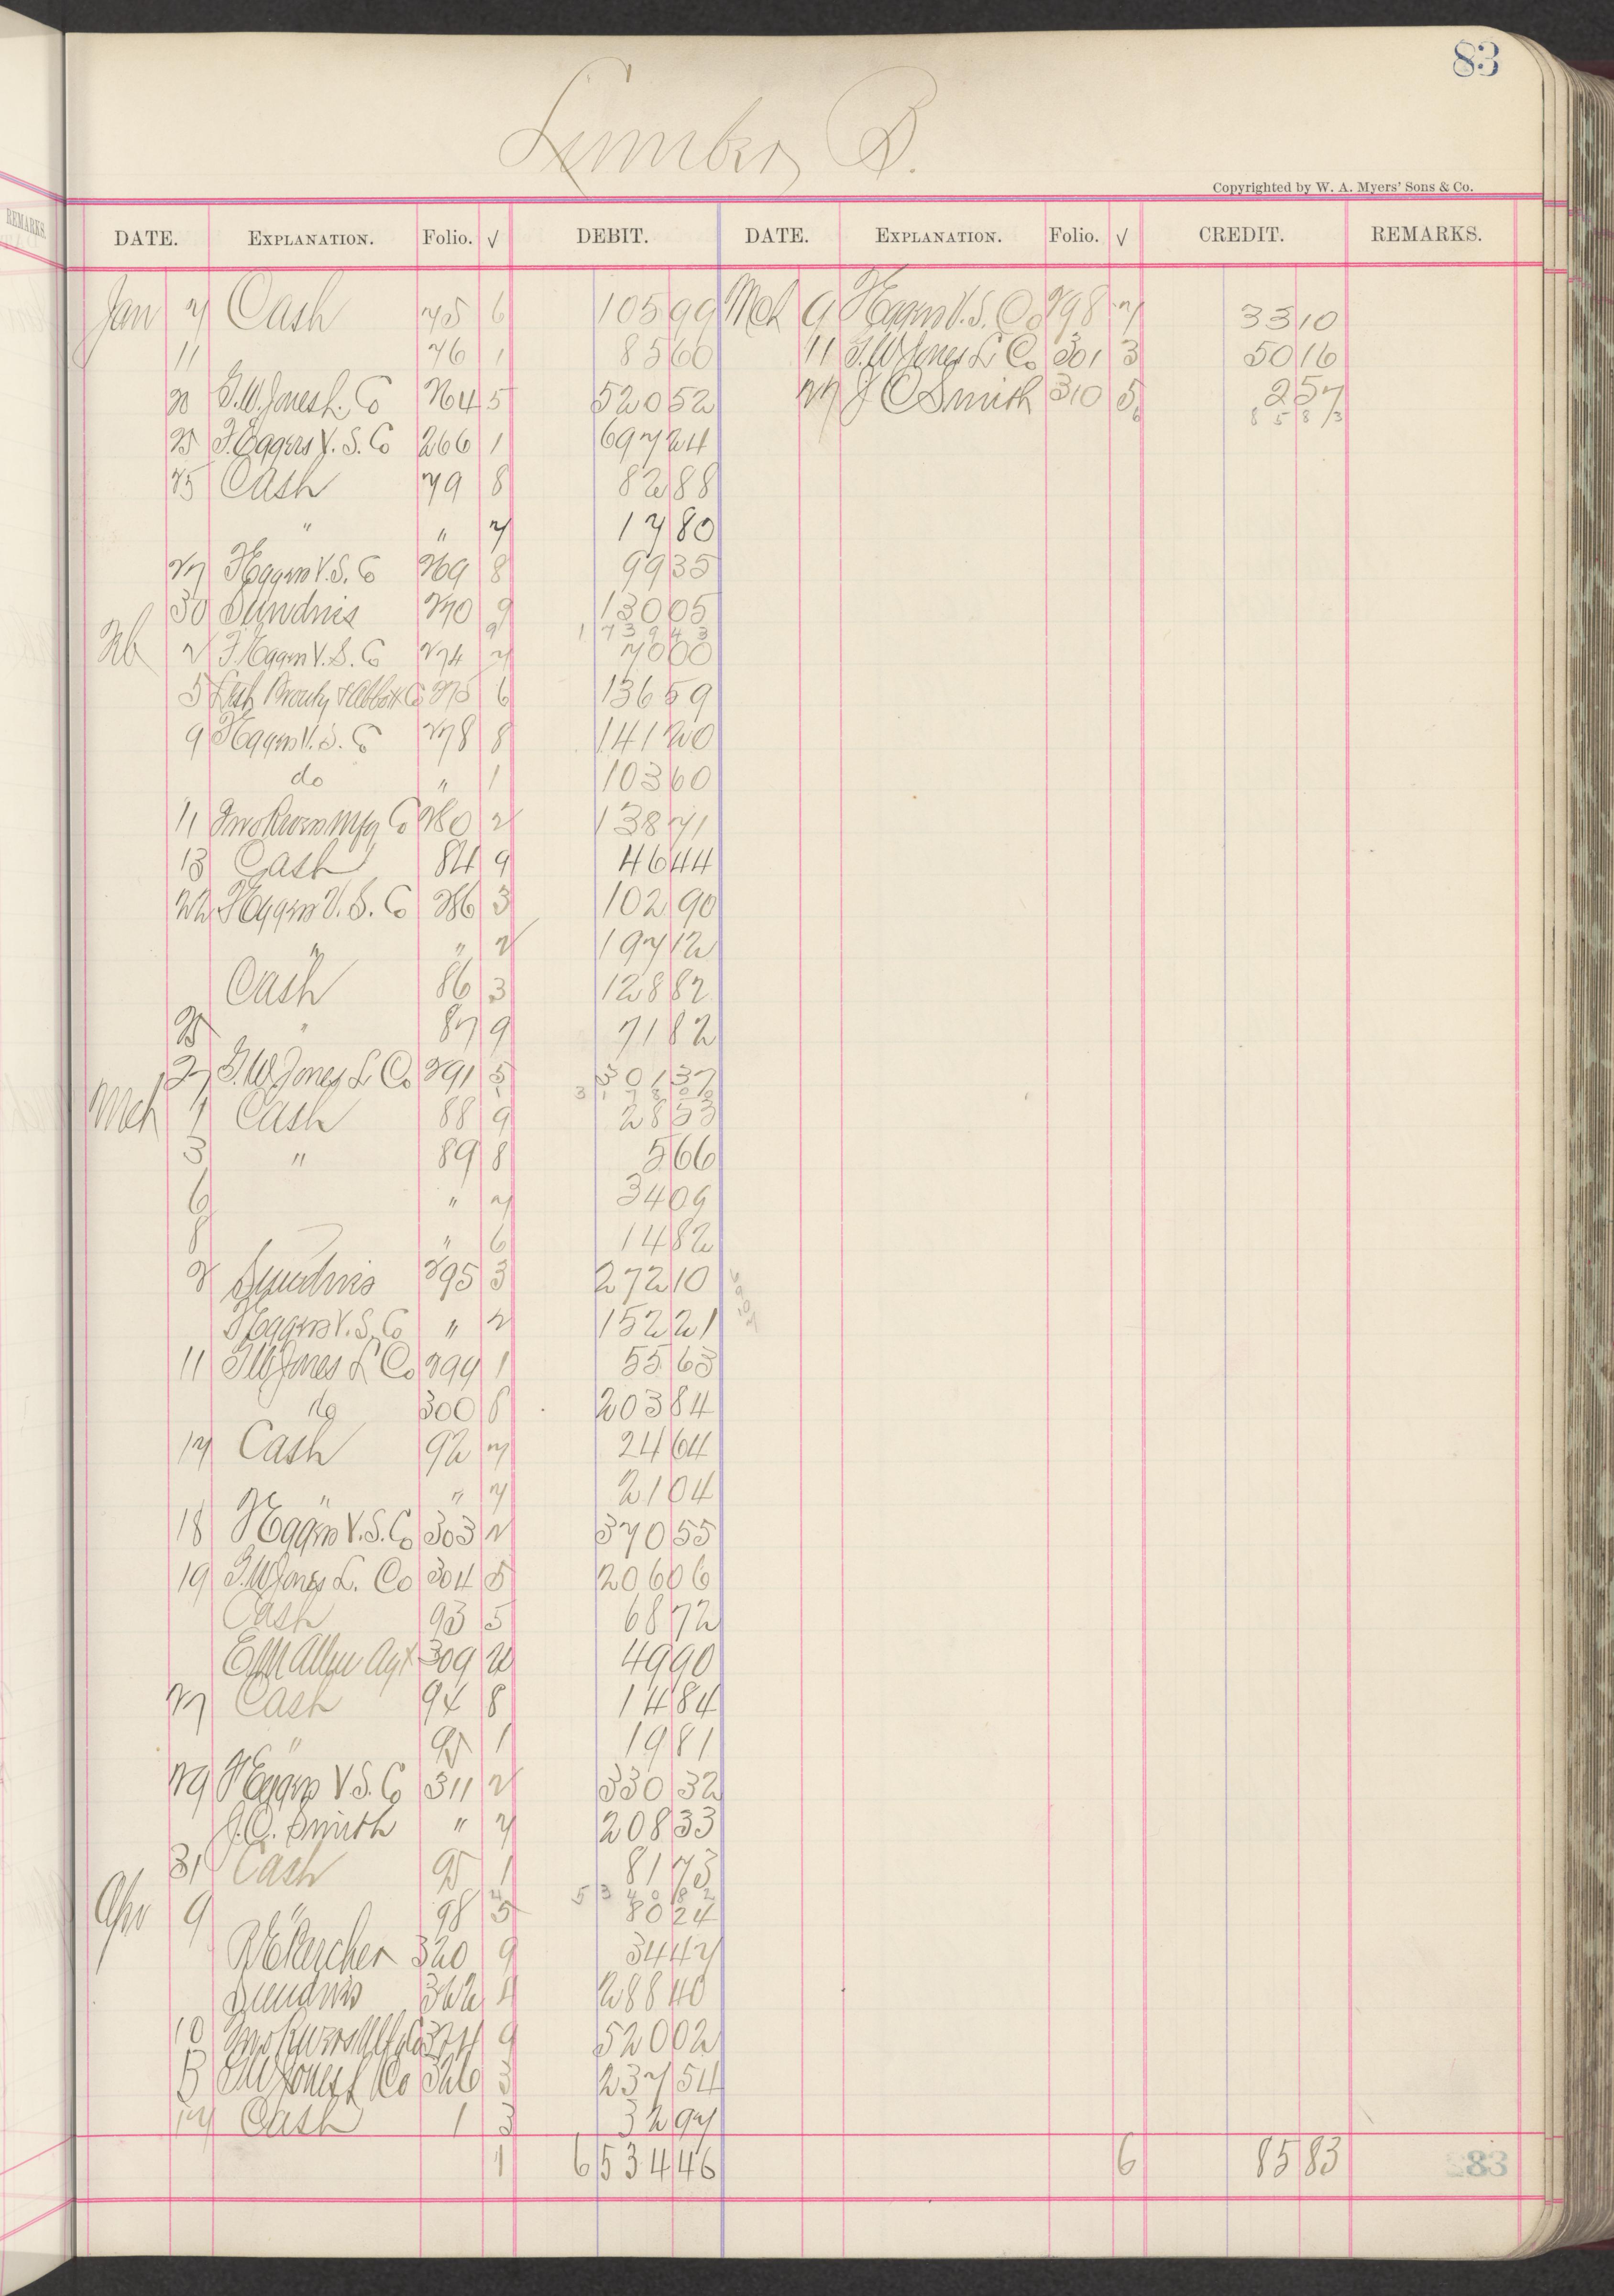 83
Lumber B.
Copyrighted by W. A. Myers' Sons & Co.
REMARKS.
DATE. EXPLANATION. Folio. √ DEBIT. DATE. EXPLANATION. Folio. √ CREDIT. REMARKS.
Jan 7 Cash 75 6 105 99 Mch 9 F Eggers V. S. Co 298 7 33 10
11 76 1 85 60 11 G. W Jones L Co 301 3 50 16
20 G. W. Jones L. Co 264 5 520 52 27 J C Smith 310 5 2 57
85 83
25 F. Eggers V. S. Co 266 1 697 24
25 Cash 79 8 82 88
" " 7 17 80
27 F Eggers V. S. Co 269 8 99 35
30 Sundries 270 9 130 05
1739 43
Feb 2 F. Eggers V. S. Co 274 7 70 00
5 Prouty & Abbott Co 275 6 136 59
9 F Eggers V. S. Co 278 8 141 20
do " 1 103 60
11 Mfg Co 280 2 138 71
13 Cash 84 9 46 44
22 F Eggers V. S. Co 286 3 102 90
" " 2 197 12
Cash 86 3 128 82
25 " 87 9 71 82
27 G. W Jones L Co 291 5 301 37
Mch 1 Cash 88 9 28 53
3 " 89 8 5 66
6 " 7 34 09
8 " 6 14 82
9 Sundries 295 3 272 10
F Eggers V. S. Co " 2 152 21
11 G W Jones L Co 299 1 55 63
do 300 8 203 84
17 Cash 92 7 24 64
" " 7 21 04
18 F Eggers V. S. Co 303 2 370 55
19 G. W Jones L. Co 304 8 206 06
Cash 93 5 68 72
E M Allyn Agt 309 2 49 90
27 Cash 94 8 14 84
" 95 1 19 81
29 F Eggers V S. Co 311 2 330 32
J. C. Smith " 7 208 33
31 Cash 95 1 81 73
Apr 9 " 98 5 80 24
Kercher 320 9 34 47
Sundries 322 4 288 40
10 324 9 520 02
13 G W Jones L Co 326 3 237 54
17 Cash 1 3 32 97
1 6534 46 6 85 83
83